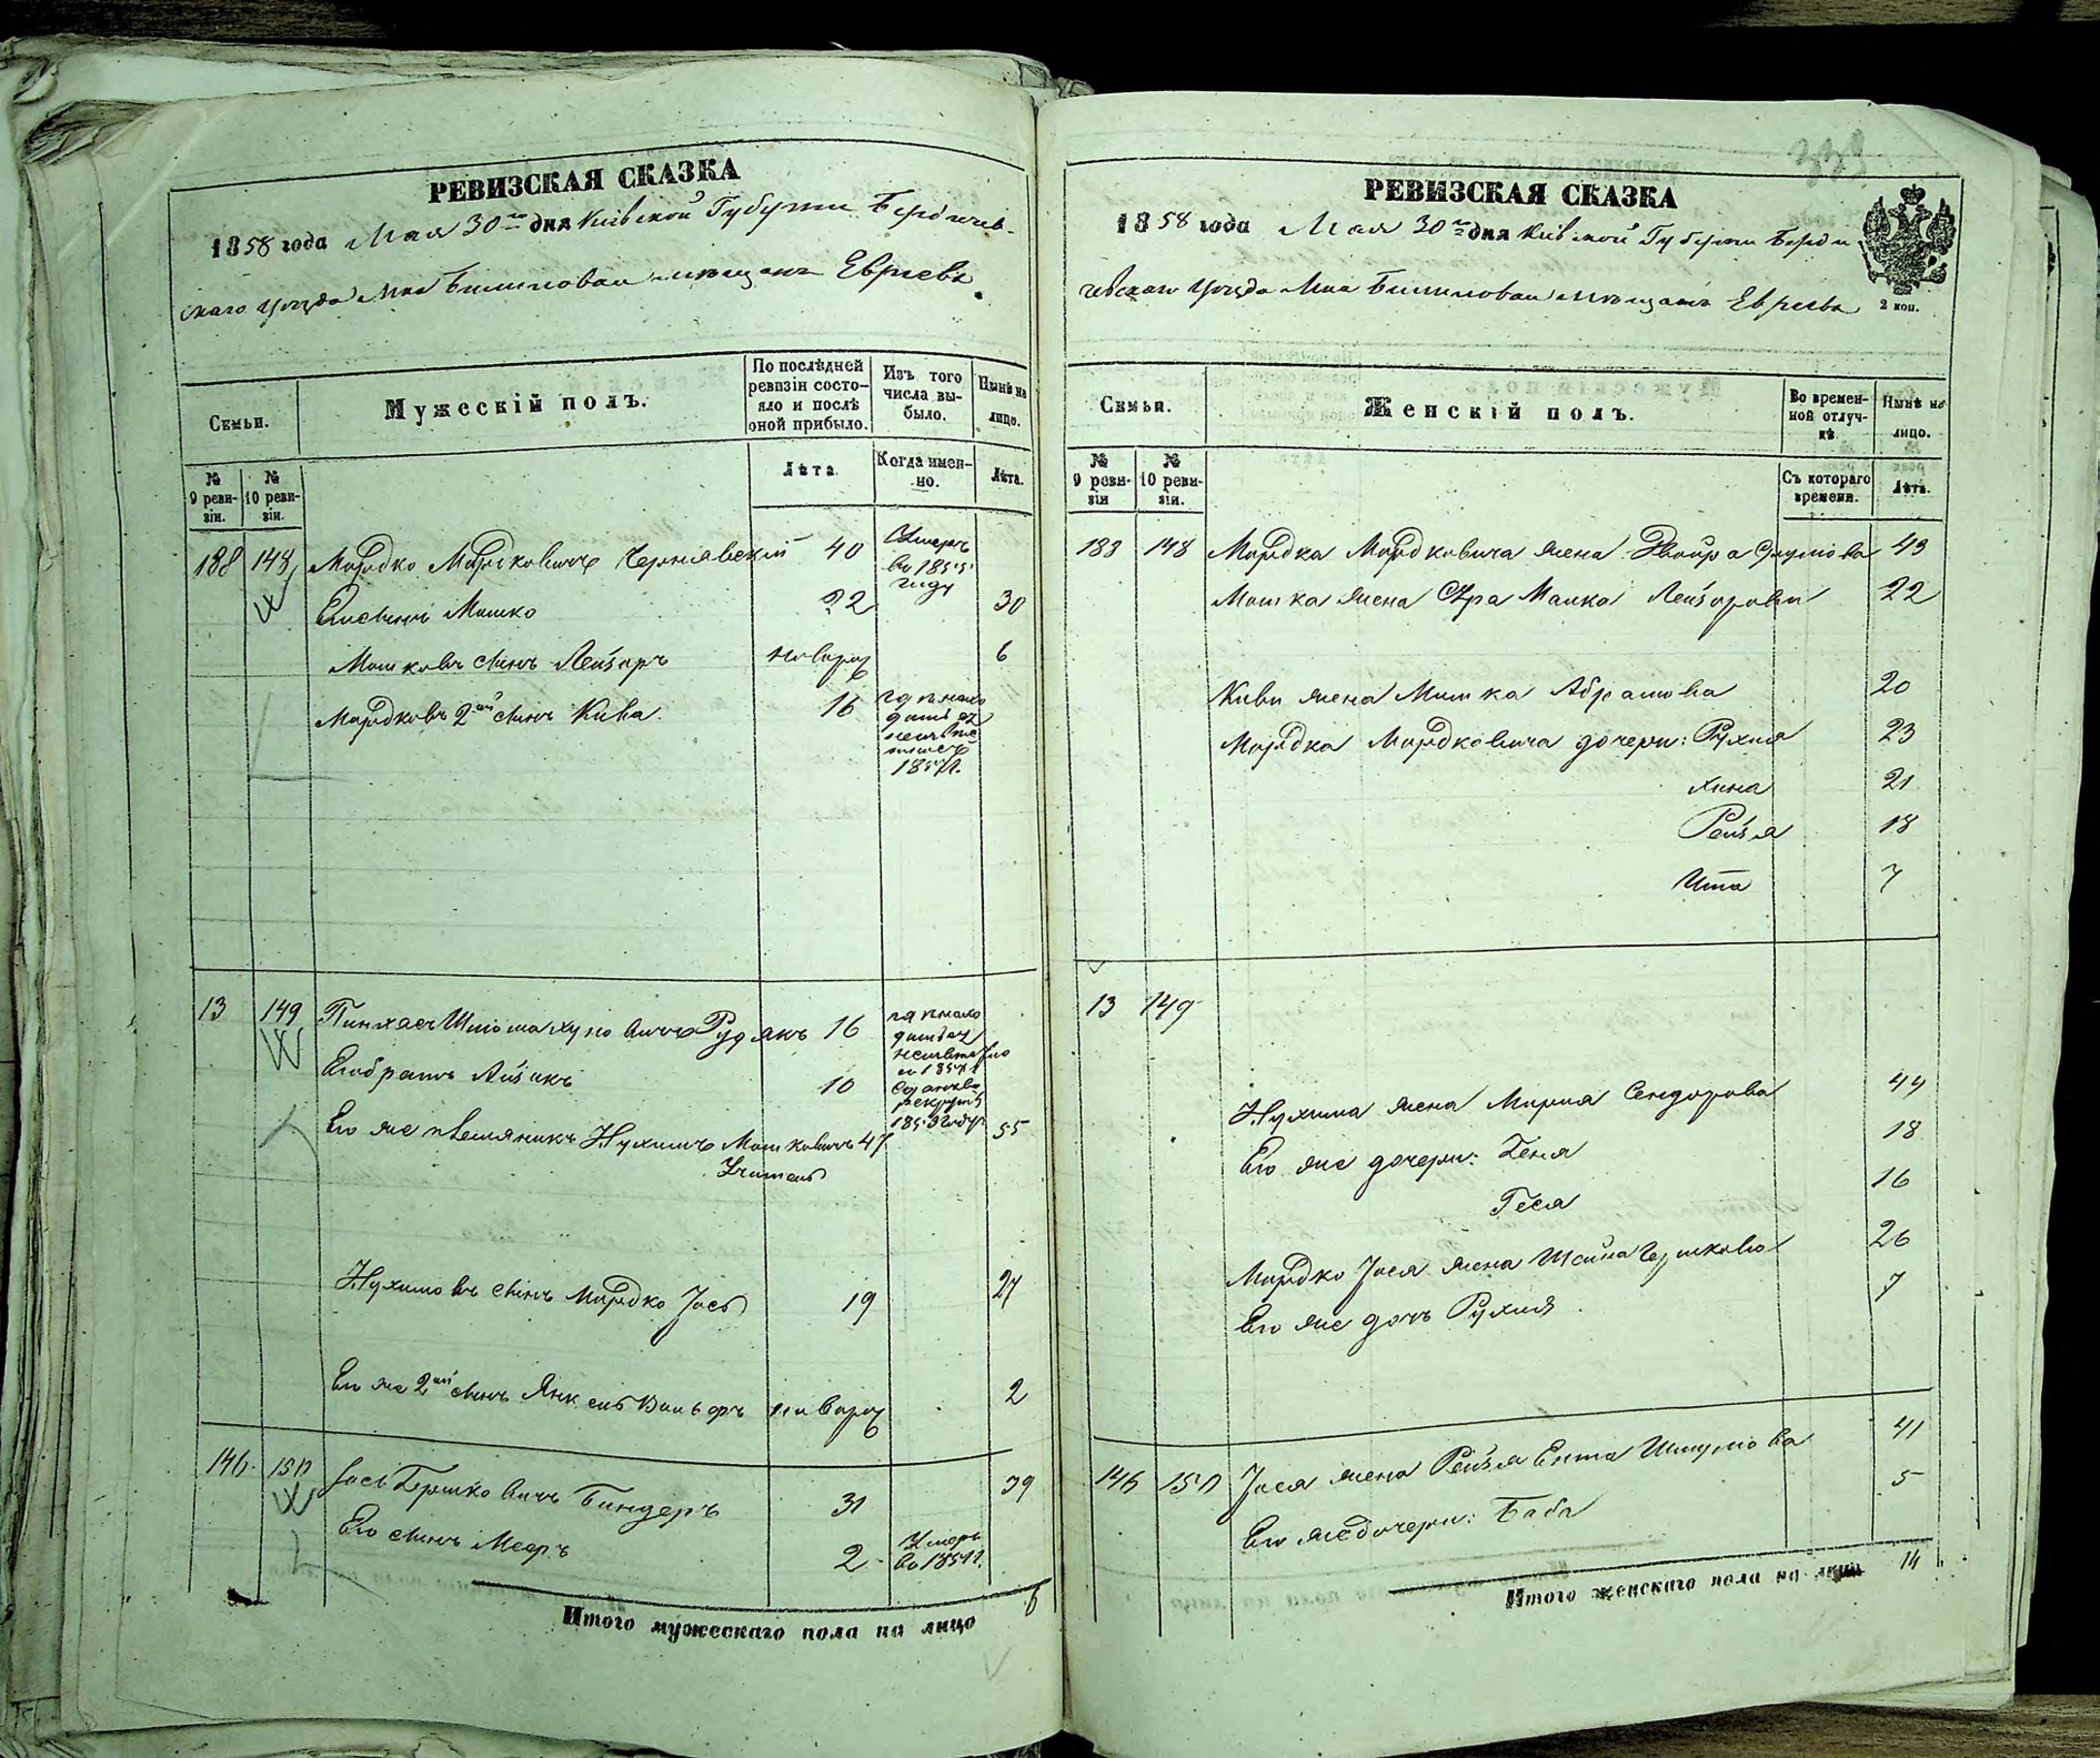 РЕВИЗСКАЯ СКАЗКА
1858 года Мая 30го дня Кіевской Губерніи Бердичев-
скаго Уѣзда Мѣщанъ Евреевъ
Семьи.
Мужескій полъ.
По послѣдней ревизіи состояло и послѣ оной прибыло.
Изъ того числа выбыло.
Нынѣ на лицо.
№ 9 ревизіи.
№ 10 ревизіи.
Лѣта
Когда именно.
Лѣта.
188 148 Мордко Мордковичъ Чернявскій 40 Умеръ во 1855 году
Его сынъ Мошко 22 30
Мошковъ сынъ Лейзоръ новорож 6
Мордковъ 2ой сынъ Кива 16 1857 г.
13 149 Пинхасъ Шлома Рудякъ 16
Его братъ Айзикъ 10 рекруты 1853 году
Его же племяникъ Нухимъ Мошковичъ 47 55
Нухимовъ сынъ Мордко Іось 19 27
Его же 2ой сынъ Янкель Вольфъ новорож 2
146 150 Іось Гершковичъ Биндеръ 31 39
Его сынъ Мееръ 2 Умеръ во 1851 г.
Итого мужескаго пола на лицо 6
333
РЕВИЗСКАЯ СКАЗКА
1858 года Мая 30го дня Кіевской Губерніи Берди
чевскаго Уѣзда Мѣщанъ Евреевъ
2 коп.
Семьи.
Женскій полъ.
Во временной отлучкѣ
Нынѣ на лицо.
№ 9 ревизіи
№ 10 ревизіи.
Съ котораго времени.
Лѣта.
183 148 Мордка Мордковича жена Двойра 43
Мошка жена Малка Лейзорова 22
Киви жена Абрамова 20
Мордка Мордковича дочери: Рухля 23
Хина 21
Рейзя 18
Ита 7
13 149
Нухима жена Мирля Сендорова 44
Его же дочери: Геня 18
Геся 16
Мордко Іося жена Шейна Гершкова 26
Его же дочь Рухля 7
146 150 Іося жена Рейзя Ента Шмулова 41
Его же дочери: Баба 5
Итого женскаго пола на лицо 14